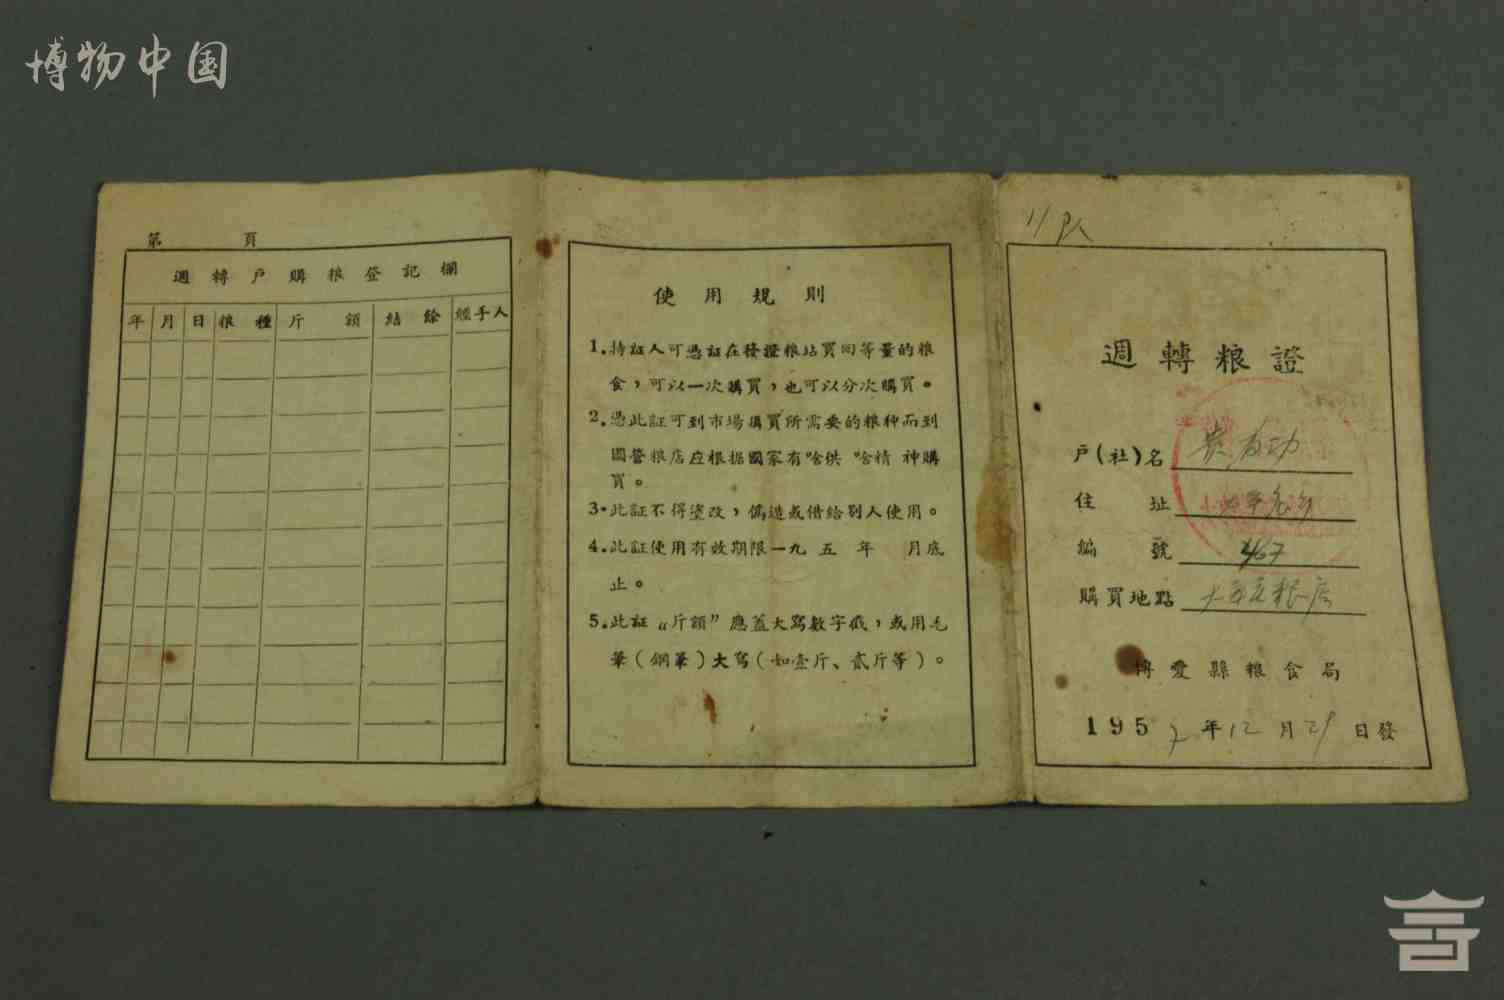 博物中国
第 頁
週轉戶購粮登記欄
年 月 日 粮種 斤額 結餘 經手人
使用規則
1.持証人可憑証在發證粮站買回等量的粮
食，可以一次購買，也可以分次購買。
2.憑此証可到市場購買所需要的粮种而到
國營粮店应根据國家有啥供啥精神購
買。
3.此証不得塗改，偽造或借給别人使用。
4.此証使用有效期限一九五 年 月底
止。
5.此証“斤額”應蓋大寫數字戳，或用毛
筆（鋼筆）大寫（如壹斤、貳斤等）。
11队
週轉粮證
戶(社)名
住址
編號 467
購買地點
博愛縣粮食局
1957年12月29日發